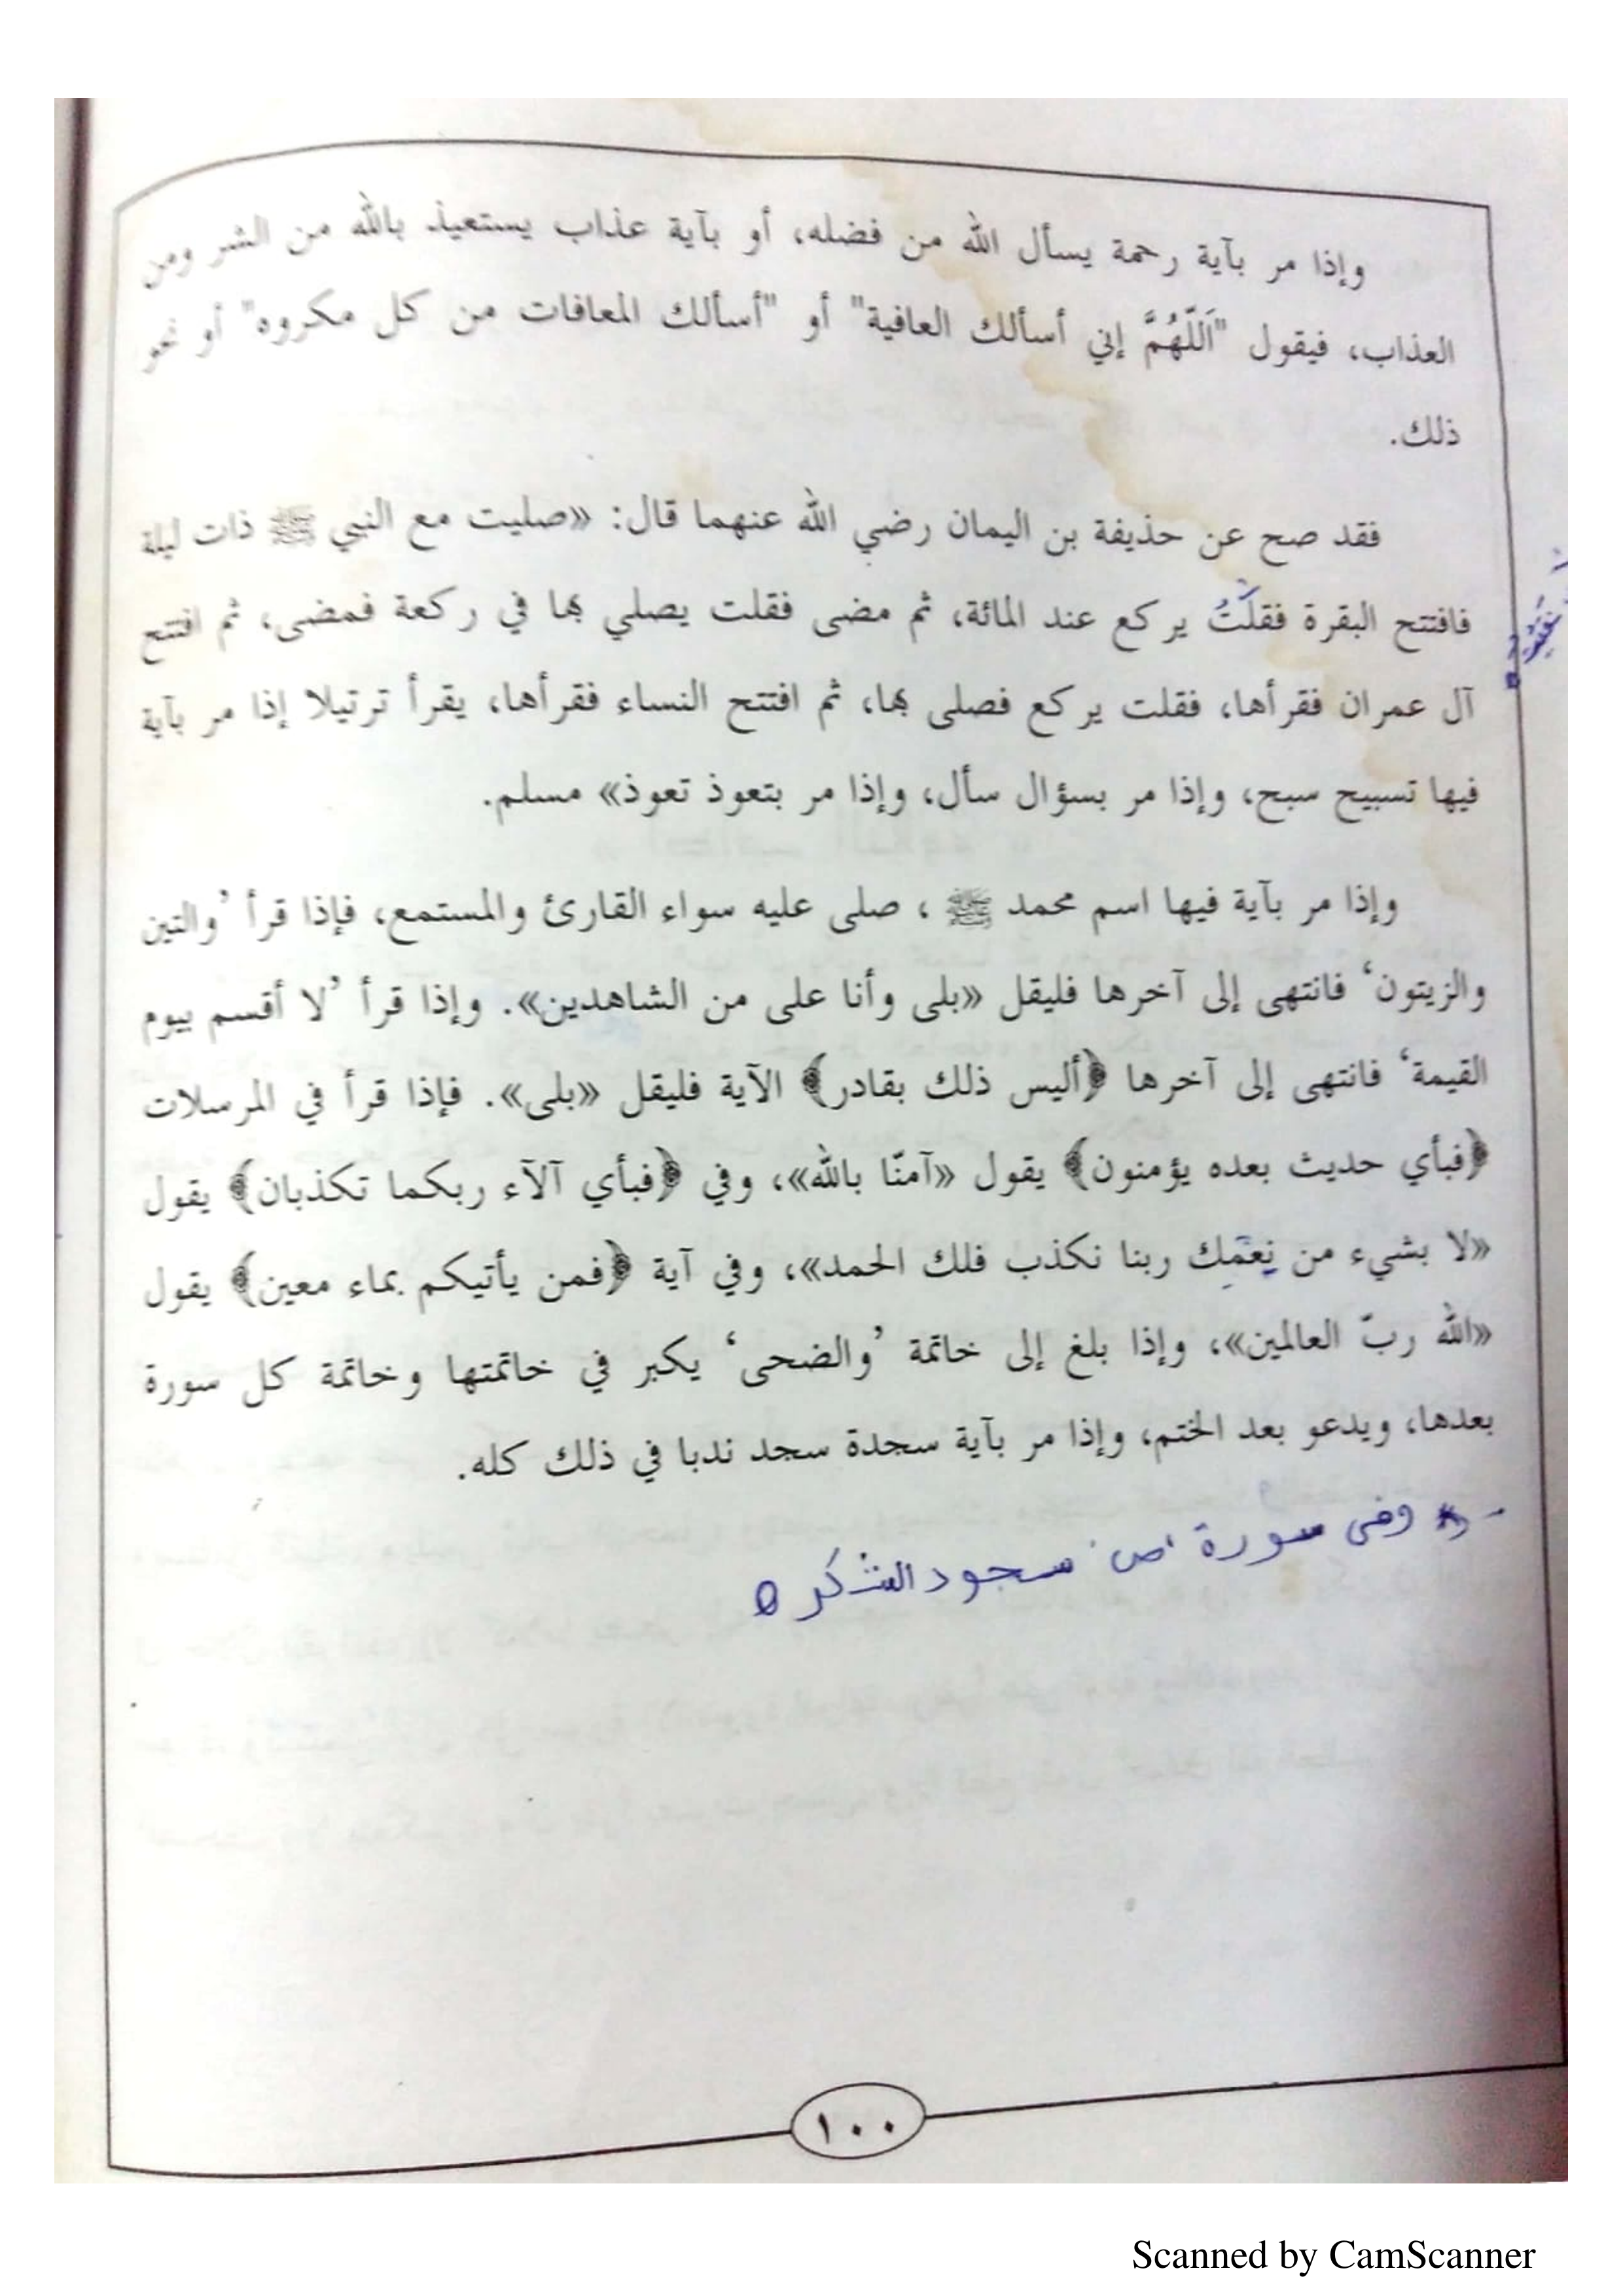 وإذا مر بآية رحمة يسأل الله من فضله، أو بآية عذاب يستعيذ بالله من الشر ومن
العذاب، فيقول "اَللّهُمَّ إني أسألك العافية" أو "أسألك المعافات من كل مكروه" أو نحو
ذلك.
فقد صح عن حذيفة بن اليمان رضي الله عنهما قال: «صليت مع النبي ﷺ ذات ليلة
فافتتح البقرة فقلْتُ يركع عند المائة، ثم مضى فقلت يصلي بها في ركعة فمضى، ثم افتتح
آل عمران فقرأها، فقلت يركع فصلى بها، ثم افتتح النساء فقرأها، يقرأ ترتيلا إذا مر بآية
فيها تسبيح سبح، وإذا مر بسؤال سأل، وإذا مر بتعوذ تعوذ» مسلم.
وإذا مر بآية فيها اسم محمد ﷺ ، صلى عليه سواء القارئ والمستمع، فإذا قرأ ’والتين
والزيتون‘ فانتهى إلى آخرها فليقل «بلى وأنا على من الشاهدين». وإذا قرأ ’لا أقسم بيوم
القيمة‘ فانتهى إلى آخرها ﴿أليس ذلك بقادر﴾ الآية فليقل «بلى». فإذا قرأ في المرسلات
﴿فبأي حديث بعده يؤمنون﴾ يقول «آمنّا بالله»، وفي ﴿فبأي آلآء ربكما تكذبان﴾ يقول
«لا بشيء من نِعَمِك ربنا نكذب فلك الحمد»، وفي آية ﴿فمن يأتيكم بماء معين﴾ يقول
«الله ربّ العالمين»، وإذا بلغ إلى خاتمة ’والضحى‘ يكبر في خاتمتها وخاتمة كل سورة
بعدها، ويدعو بعد الختم، وإذا مر بآية سجدة سجد ندبا في ذلك كله.
وفى سورة 'ص' سجود الشكر
١٠٠
Scanned by CamScanner